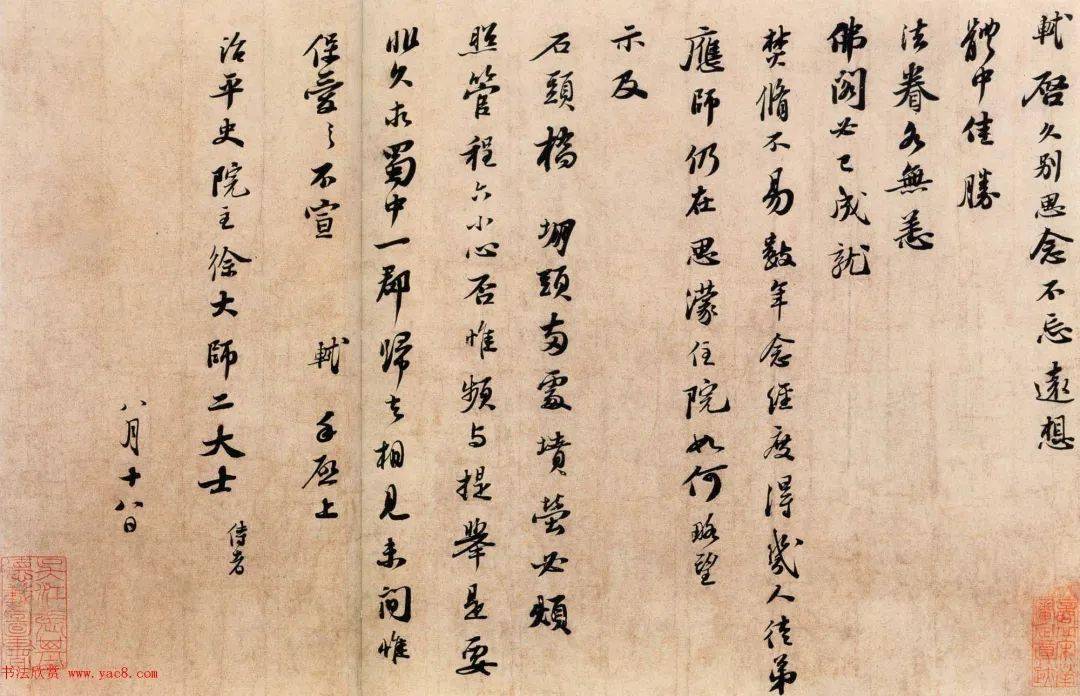 軾啓久别思念不忘遠想
體中佳勝
法眷各無恙
佛閣必已成就
焚脩不易數年念經度得幾人徒弟
應師仍在思濛住院如何略望
示及
石頭橋 堋頭兩處墳塋必煩
照管程六小心否惟頻与提舉是要
非久求蜀中一郡歸去相見未間惟
保愛之不宣 軾手啓上
治平史院主徐大師二大士 侍者
八月十八日
书法欣赏 www.yac8.com